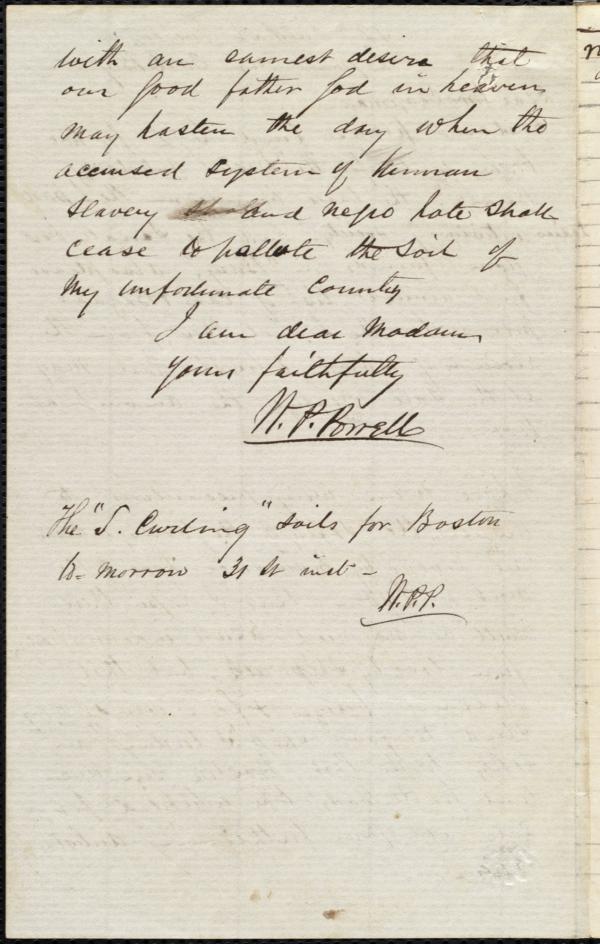 with an earnest desire that
our good father God in heaven
may hasten the day when the
accursed system of human
slavery and negro hate shall
cease to pollute the soil of
my unfortunate country
I am dear Madam
yours faithfully
W. P. Powell
The "S. Curling" sails for Boston
to-morrow 31st inst -
W.P.P.